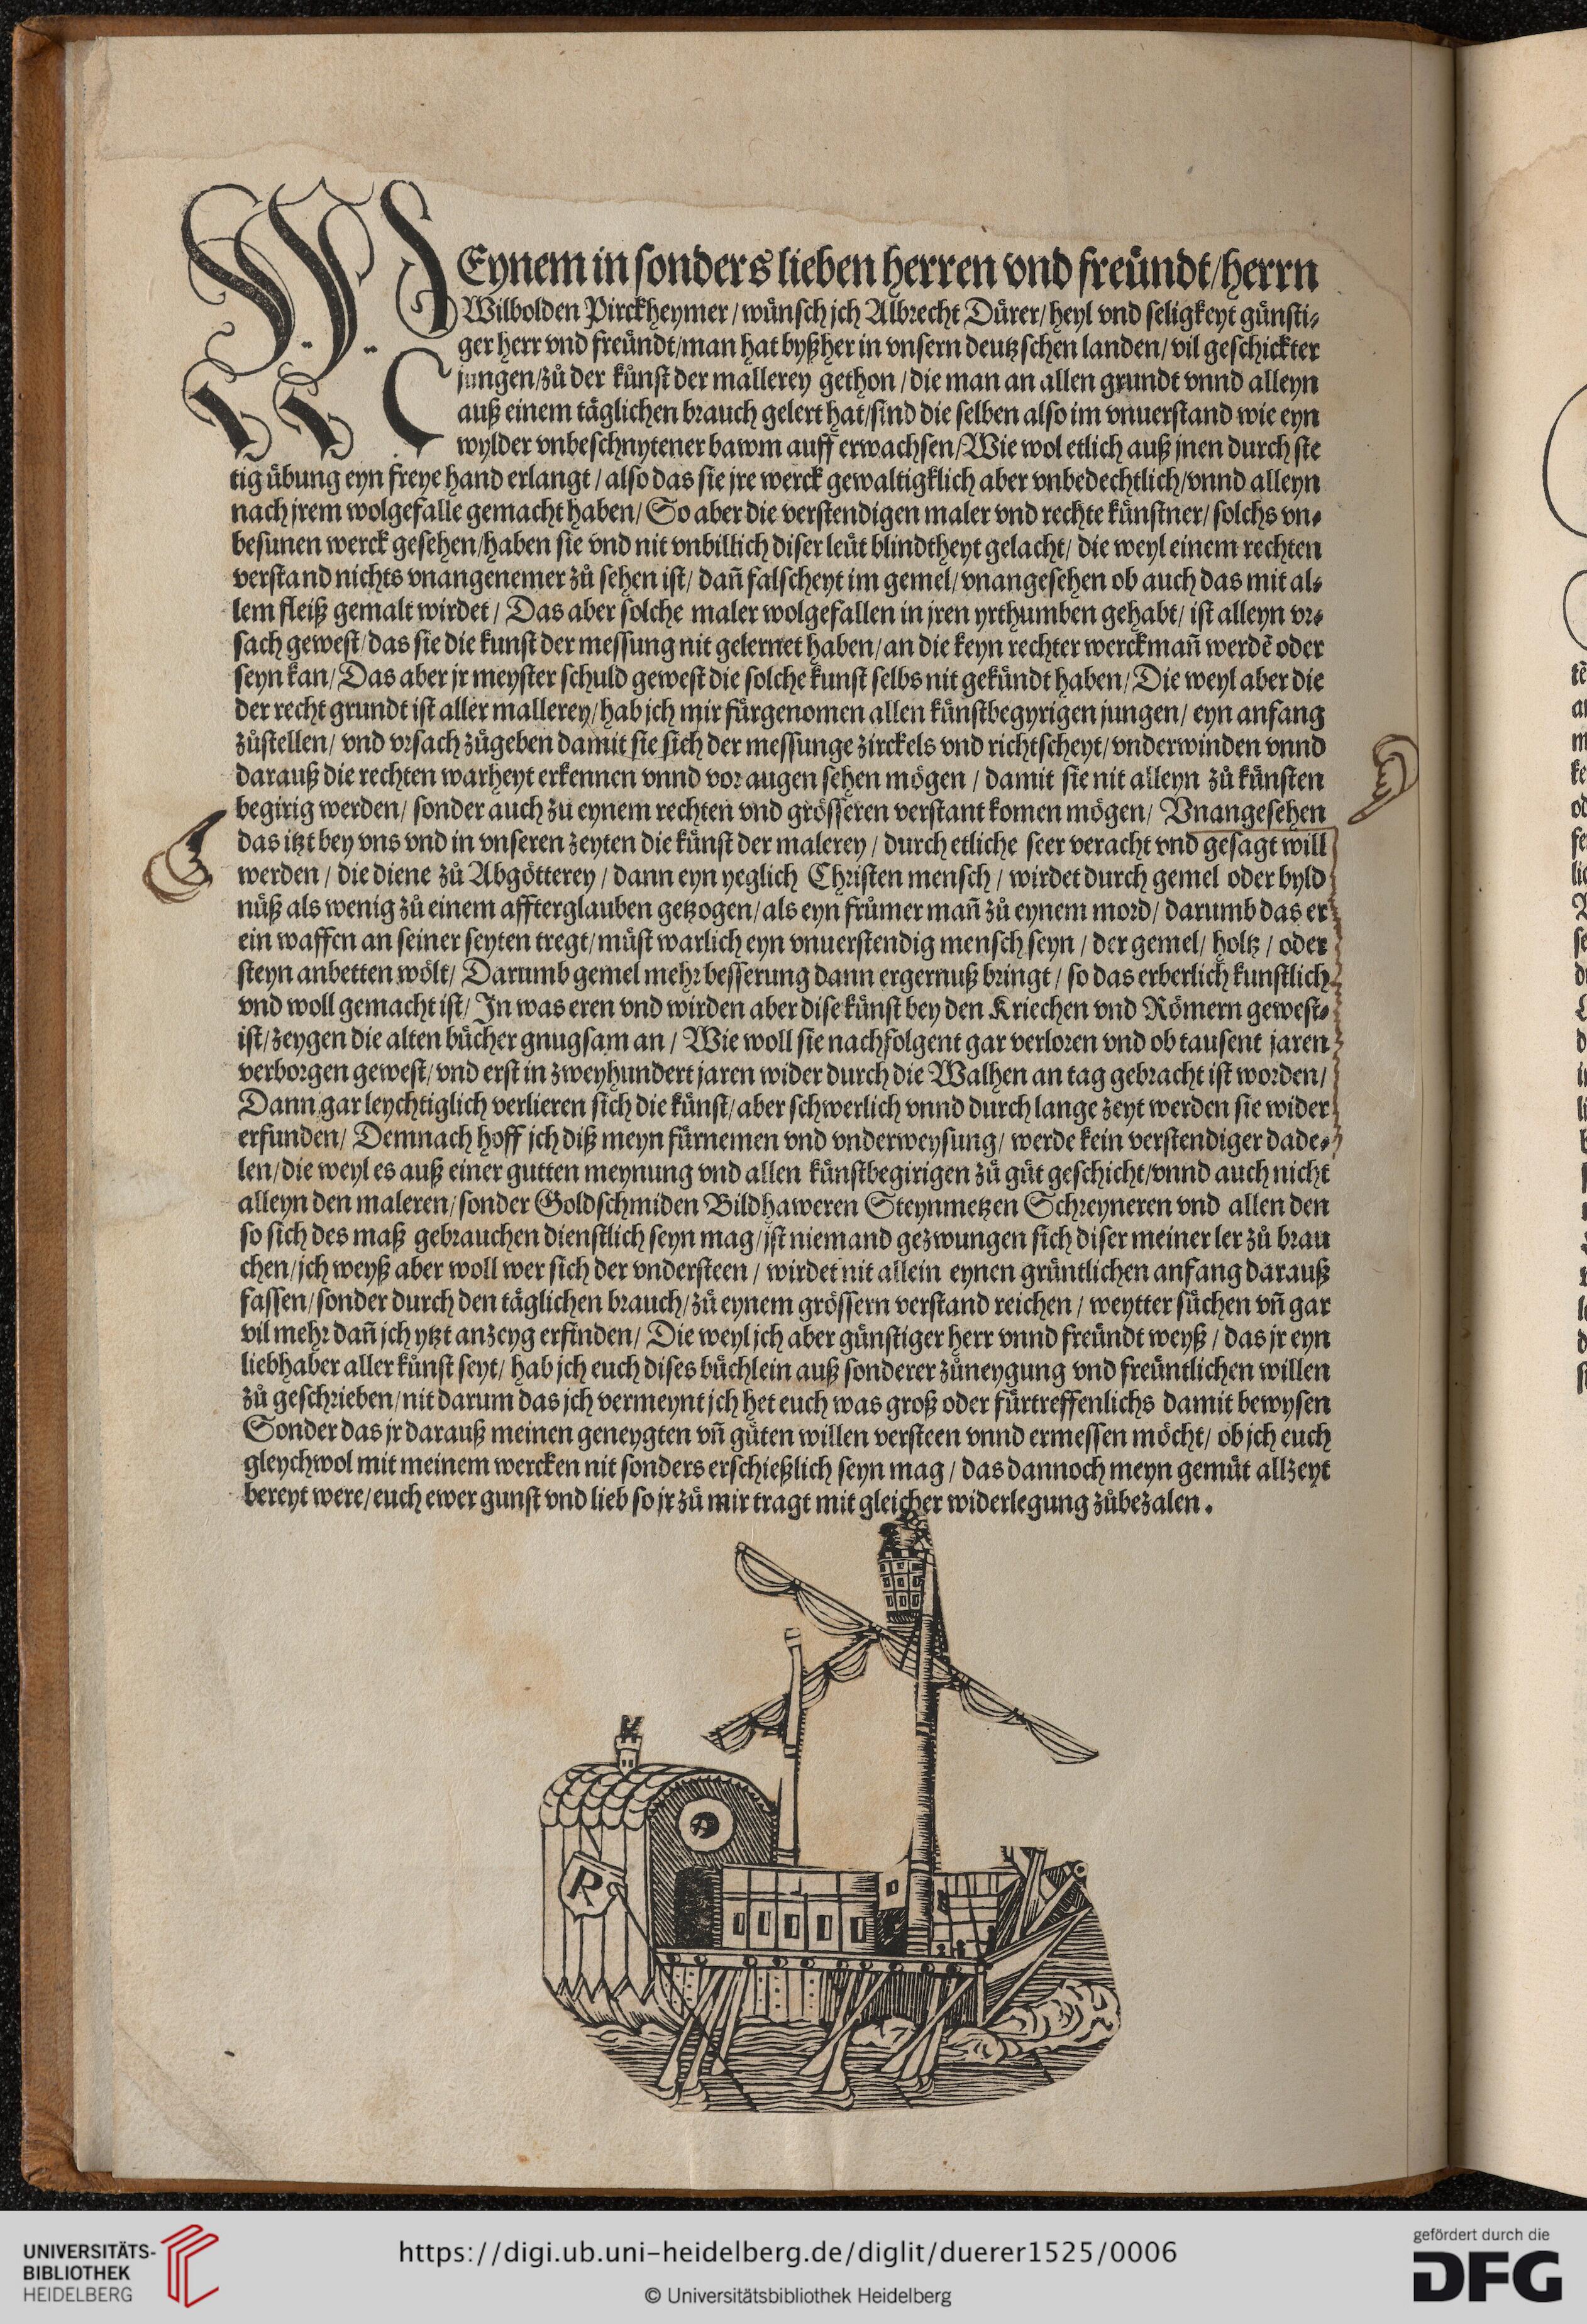 MEynem in sonders lieben herren vnd freündt/herrn
Wilbolden Pirckheymer/wünsch jch Albrecht Dürer/heyl vnd seligkeyt günsti⸗
ger herr vnd freündt/man hat byßher in vnsern deutzschen landen/vil geschickter
jungen/zů der kůnst der mallerey gethon/die man an allen grundt vnnd alleyn
auß einem täglichen brauch gelert hat/sind die selben also im vnuerstand wie eyn
wylder vnbeschnytener bawm auff erwachsen/Wie wol etlich auß jnen durch ste
tig übung eyn freye hand erlangt/also das sie jre werck gewaltigklich aber vnbedechtlich/vnnd alleyn
nach jrem wolgefalle gemacht haben/So aber die verstendigen maler vnd rechte künstner/solchs vn⸗
besunen werck gesehen/haben sie vnd nit vnbillich diser leüt blindtheyt gelacht/die weyl einem rechten
verstand nichts vnangenemer zů sehen ist/dañ falscheyt im gemel/vnangesehen ob auch das mit al⸗
lem fleiß gemalt wirdet/Das aber solche maler wolgefallen in jren yrthumben gehabt/ist alleyn vr⸗
sach gewest/das sie die kunst der messung nit gelernet haben/an die keyn rechter werckmañ werdẽ oder
seyn kan/Das aber jr meyster schuld gewest die solche kunst selbs nit gekündt haben/Die weyl aber die
der recht grundt ist aller mallerey/hab jch mir fürgenomen allen künstbegyrigen jungen/eyn anfang
zůstellen/vnd vrsach zůgeben damit sie sich der messunge zirckels vnd richtscheyt/vnderwinden vnnd
darauß die rechten warheyt erkennen vnnd vor augen sehen mögen/damit sie nit alleyn zů künsten
begirig werden/sonder auch zu eynem rechten vnd grösseren verstant komen mögen/Vnangesehen
das itzt bey vns vnd in vnseren zeyten die künst der malerey/durch etliche seer veracht vnd gesagt will
werden/die diene zů Abgötterey/dann eyn yeglich Christen mensch/wirdet durch gemel oder byld
nüß als wenig zů einem affterglauben getzogen/als eyn frůmer mañ zů eynem mord/darumb das er
ein waffen an seiner seyten tregt/müst warlich eyn vnuerstendig mensch seyn/der gemel/holtz/oder
steyn anbetten wölt/Darumb gemel mehr besserung dann ergernuß bringt/so das erberlich kunstlich
vnd woll gemacht ist/In was eren vnd wirden aber dise künst bey den Kriechen vnd Römern gewest⸗
ist/zeygen die alten bücher gnugsam an/Wie woll sie nachfolgent gar verloren vnd ob tausent jaren
verborgen gewest/vnd erst in zweyhundert jaren wider durch die Walhen an tag gebracht ist worden/
Dann gar leychtiglich verlieren sich die künst/aber schwerlich vnnd durch lange zeyt werden sie wider
erfunden/Demnach hoff jch diß meyn fürnemen vnd vnderweysung/werde kein verstendiger dade⸗
len/die weyl es auß einer gutten meynung vnd allen künstbegirigen zů gůt geschicht/vnnd auch nicht
alleyn den maleren/sonder Goldschmiden Bildhaweren Steynmetzen Schreyneren vnd allen den
so sich des maß gebrauchen dienstlich seyn mag/jst niemand gezwungen sich diser meiner ler zů brau
chen/jch weyß aber woll wer sich der vndersteen/wirdet nit allein eynen grüntlichen anfang darauß
fassen/sonder durch den täglichen brauch/zů eynem grössern verstand reichen/weytter süchen vñ gar
vil mehr dañ jch ytzt anzeyg erfinden/Die weyl jch aber günstiger herr vnnd freündt weyß/das jr eyn
liebhaber aller kůnst seyt/hab jch euch dises büchlein auß sonderer zůneygung vnd freüntlichen willen
zů geschrieben/nit darum das jch vermeynt jch het euch was groß oder fürtreffenlichs damit bewysen
Sonder das jr darauß meinen geneygten vñ gůten willen versteen vnnd ermessen möcht/ob jch euch
gleychwol mit meinem wercken nit sonders erschießlich seyn mag/das dannoch meyn gemüt allzeyt
bereyt were/euch ewer gunst vnd lieb so jr zů mir tragt mit gleicher widerlegung zůbezalen.
R
UNIVERSITÄTS-
BIBLIOTHEK
HEIDELBERG
https://digi.ub.uni-heidelberg.de/diglit/duerer1525/0006
© Universitätsbibliothek Heidelberg
gefördert durch die
DFG